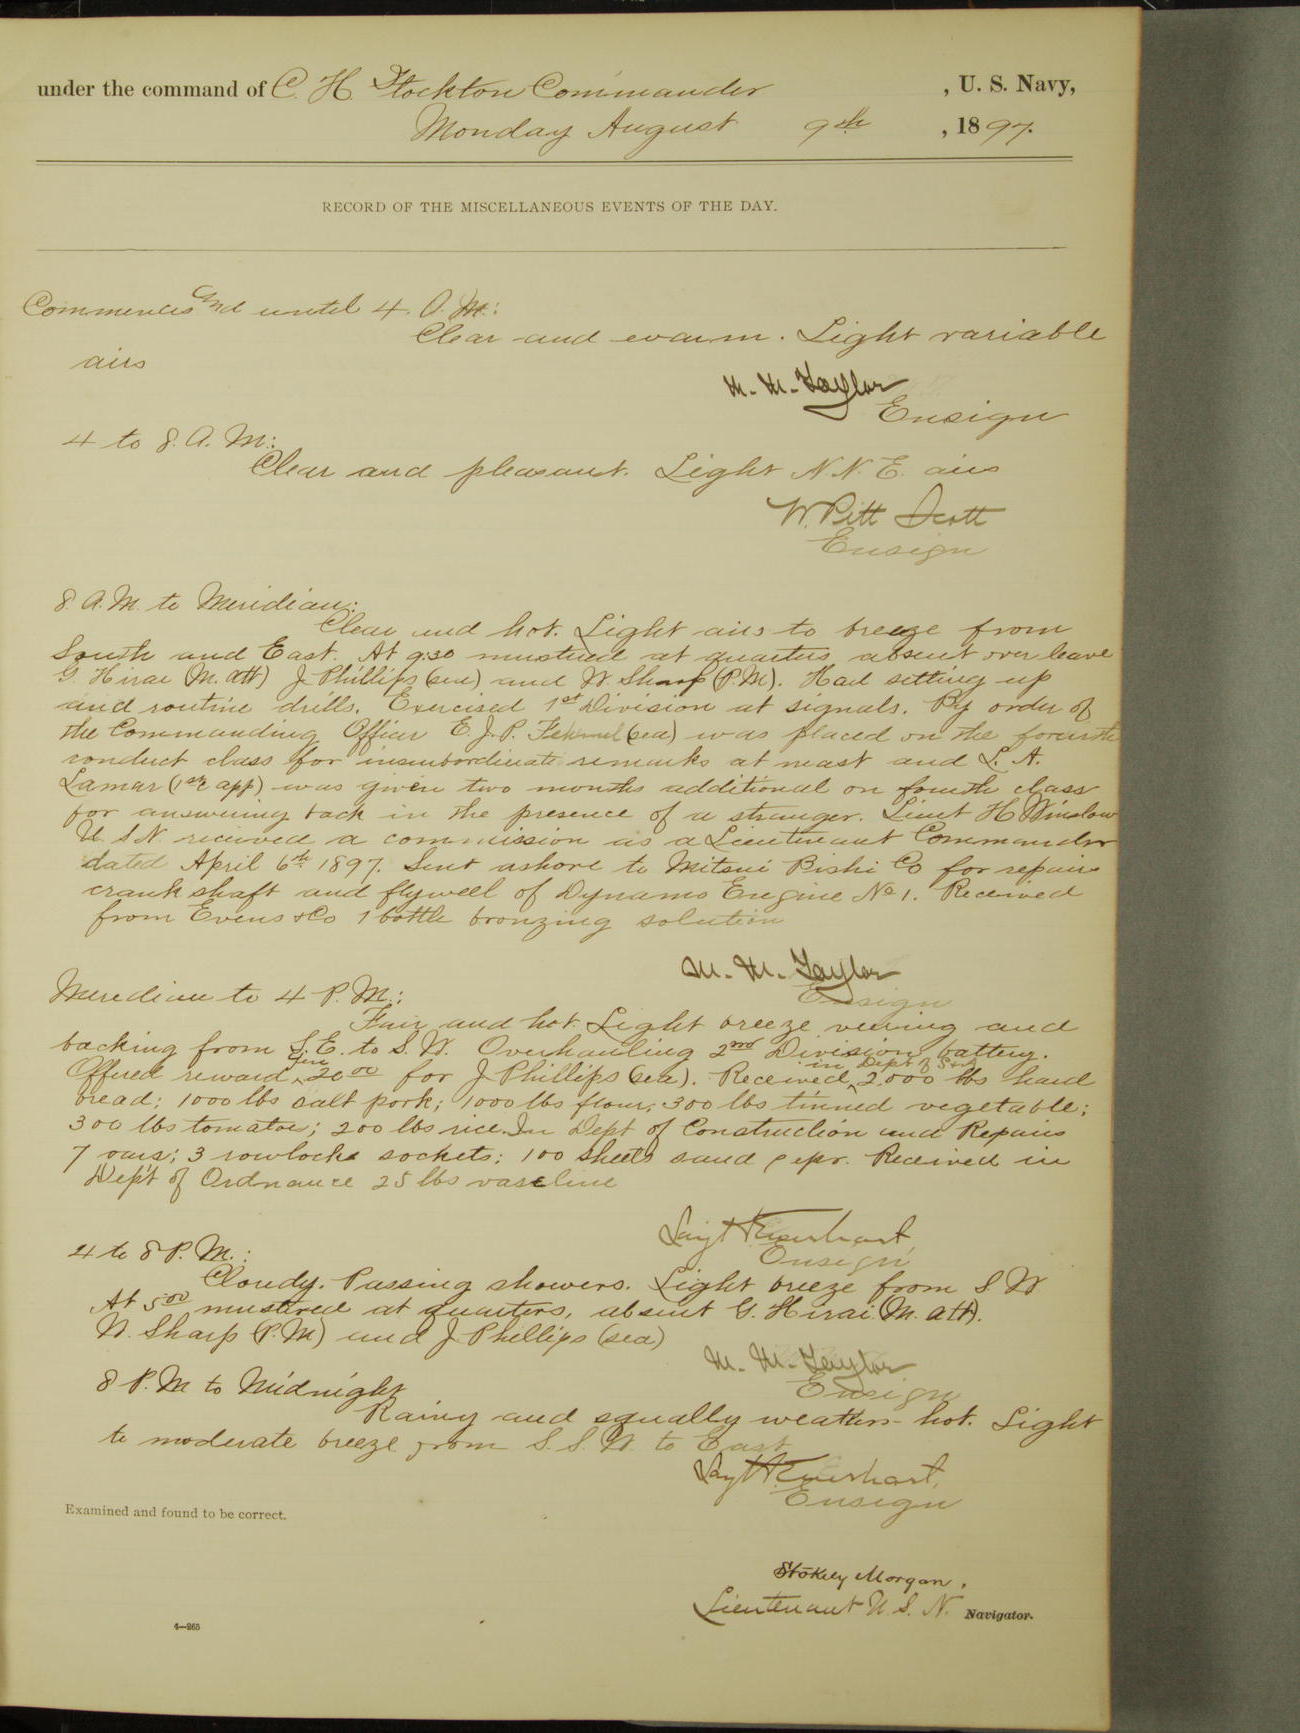 under the command of C. H. Stockton Commander , U. S. Navy,
Monday August 9th , 1897.
RECORD OF THE MISCELLANEOUS EVENTS OF THE DAY.
Commences and until 4. A. M.:
Clear and warm. Light variable
airs
M. M. Taylor
Ensign
4 to 8. A. M.:
Clear and pleasant. Light N. N. E. airs
W. Pitt Scott
Ensign
8 A. M. to Meridian:
Clear and hot. Light airs to breeze from
South and East. At 9:30 mustered at quarters absent over leave
G Hirai (M. att) J Phillips (sea) and W. Sharp (P. M). Had setting up
and routine drills. Exercised 1st Division at signals. By order of
the Commanding Officer E. J. P. (sea) was placed on the fourth
conduct class for insubordinate remarks at mast and L. A.
Lamar (1st c app) was given two months additional on fourth class
for answering back in the presence of a stranger. Lieut H Winslow
U. S. N. received a commission as a Lieutenant Commander
dated April 6th 1897. Sent ashore to Mitsui Bishi Co for repairs
crank shaft and flywell of Dynamo Engine No 1. Received
from Evens & Co 1 bottle bronzing solution
M. M. Taylor
Ensign
Meridian to 4 P. M.:
Fair and hot. Light breeze veering and
backing from S. E. to S. W. Overhauling 2nd Division battery.
Offered reward yen 20 00 for J Phillips (sea). Received in Dept of S&A 2.000 lbs hard
bread; 1000 lbs salt pork; 1000 lbs flour; 300 lbs tinned vegetable;
300 lbs tomatoes; 200 lbs rice. In Dept of Construction and Repairs
7 oars; 3 rowlocks sockets; 100 sheets sand paper. Received in
Dep't of Ordnance 25 lbs vaseline
Ensign
4 to 8 P. M.:
Cloudy. Passing showers. Light breeze from S W
At 5 00 mustered at quarters, absent G. Hirai (M. att).
W. Sharp (P. M) and J. Phillips (sea)
M. M. Taylor
Ensign
8 P. M to Midnight
Rainy and squally weather hot. Light
to moderate breeze from S. S. W. to East
Ensign
Examined and found to be correct.
Stokely Morgan,
Lieutenant U. S. N. Navigator.
4—265